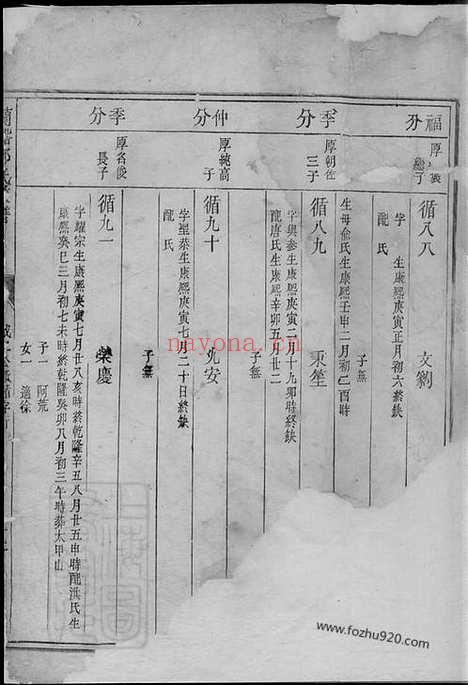 福分
季分
仲分
季分
厚朝
三子
厚純高
子
厚名俊
長子
循八八
文劉
字 生康熙庚寅正月初六終缺
配氏
子無
循八九
生母俞氏生康熙壬申二月初二酉時
字與參生康熙庚寅二月十九卯時終缺
配唐氏生康熙辛卯五月廿二
子無
循九十
九安
字聖恭生康熙庚寅七月二十日終缺
配氏
子無
循九一
榮慶
字耀宗生康熙庚寅七月廿八亥時終乾隆辛丑八月廿五申時配洪氏生
康熙癸巳三月初七未時終乾隆癸卯八月初三午時葬太甲山
子一 阿荒
女一 適徐
nayona.cn
www.fozhu920.com